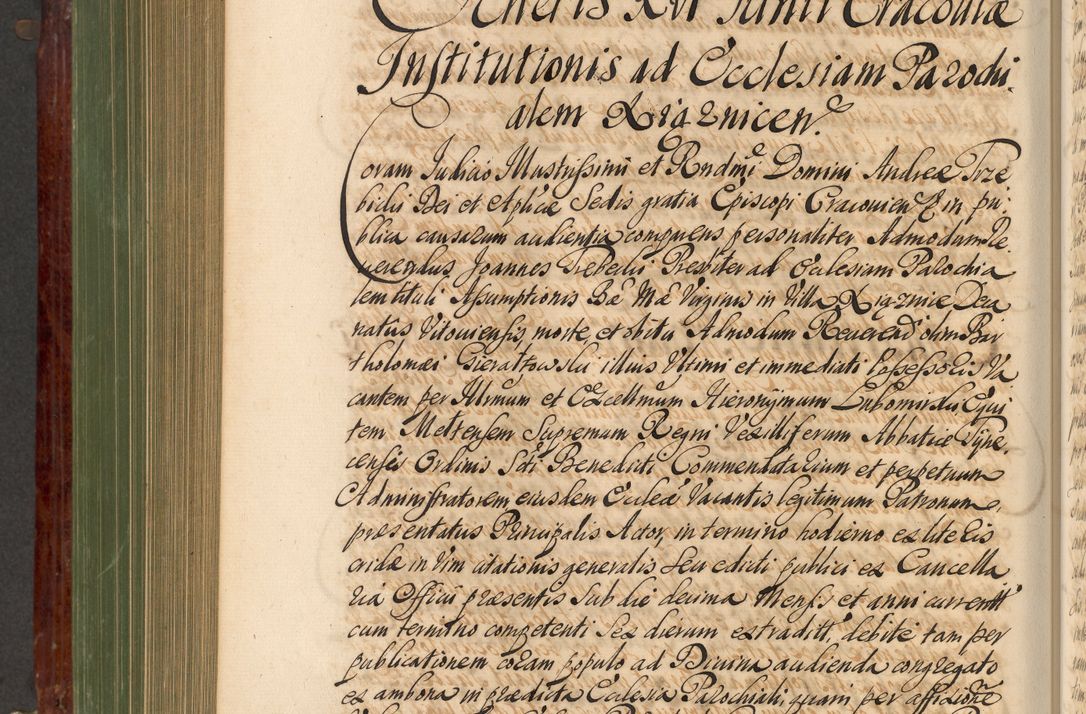 Veneris XVI Junii Cracoviæ
Institutionis ad Ecclesiam Parochi
alem Xiąznicen.
Coram Judicio Illustrissimi et Rndmi Domini Andreæ Trze
bicki Dei et Aplicæ Sedis gratia Episcopi Cracovien & in pu
blica causarum audientia comparens personaliter Admodum Re
verendus Joannes Trebelii Presbiter ad Ecclesiam Parochia
lem tituli Assumptionis Bæ Mæ Virginis in Villa Xiąznice Deca
natûs Vitoviensis, morte, et obitu Admodum Reverend olim Bar
tholomæi Gieraltowskii illius Ultimi et immediati Possessoris Va
cantem per Illrmum et Excellmum Hieronymum Lubomirskii Equi
tem Meltensem Supremum Regni Vexilliferum Abbatiæ Tyne
censis Ordinis Scti Benedicti Commendatarium et perpetuum
Administratorem eiusdem Ecclæ Vacantis legitimum Patronum
præsentatus Principalis Actor, in termino hodierno ex lite Cis
cridæ in Vim citationis generalis Seu edicti publici ex Cancella
ria Officii præsentis Sub die decima Mensis et anni currentt
cum termino competenti Sex dierum extraditt, debite tam per
publicationem coram populo ad Divina audienda congregato
ex ambona in prædicta Ecclesia Parochiali, quam per affixione